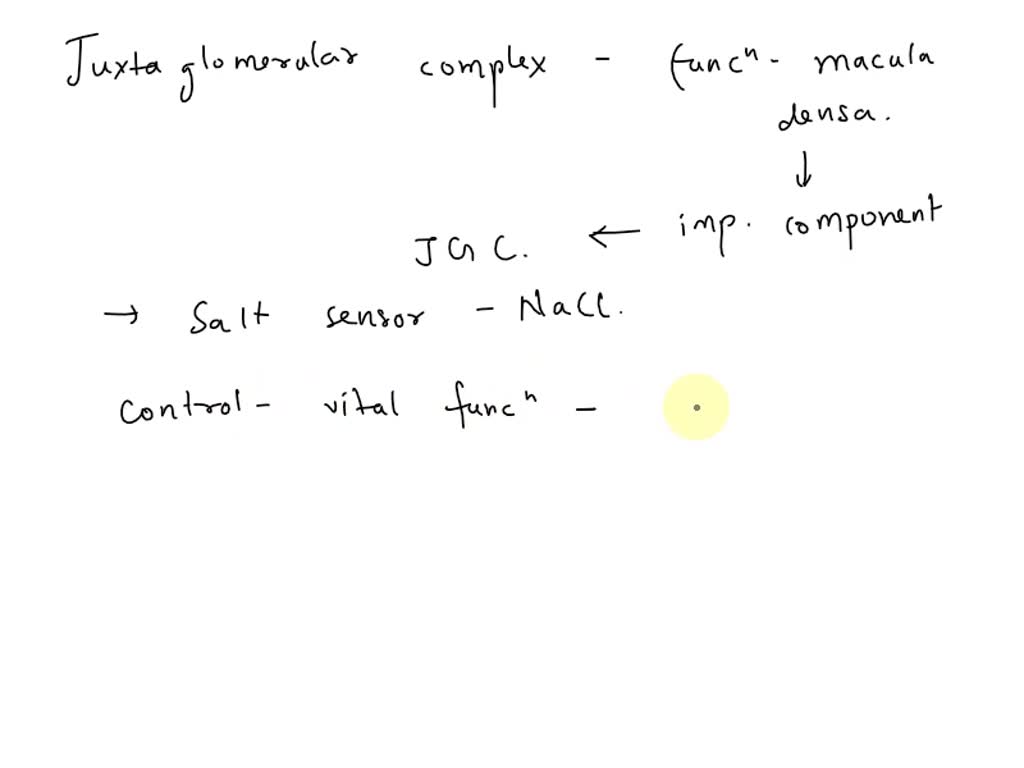 Juxta glomerular complex - funcⁿ - macula
densa.
↓
JGC. ← imp. component
→ Salt sensor - NaCl.
control - vital funcⁿ -